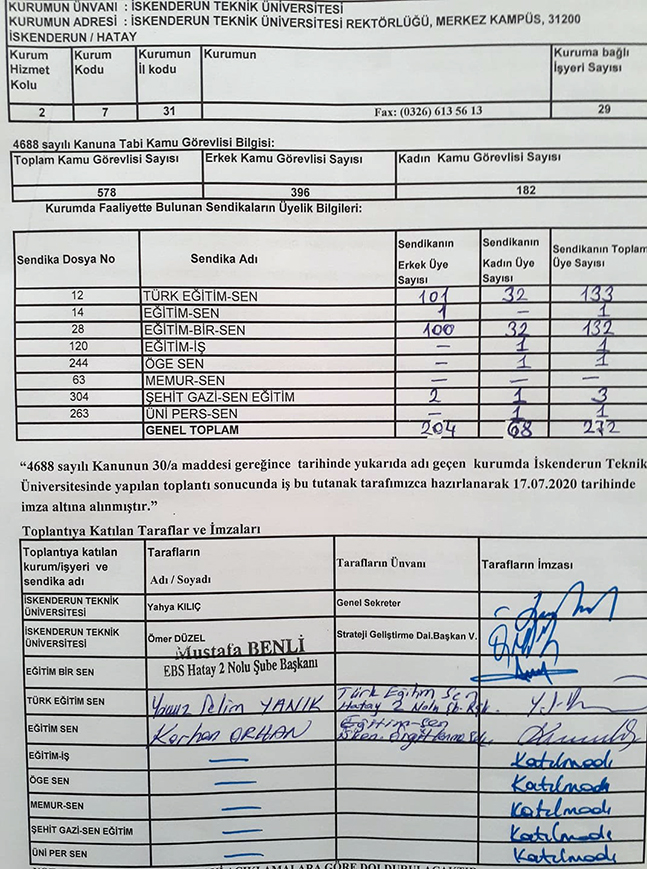 KURUMUN ÜNVANI : İSKENDERUN TEKNİK ÜNİVERSİTESİ
KURUMUN ADRESİ : İSKENDERUN TEKNİK ÜNİVERSİTESİ REKTÖRLÜĞÜ, MERKEZ KAMPÜS, 31200
İSKENDERUN / HATAY
Kurum Hizmet Kolu Kurum Kodu Kurumun İl kodu Kurumun Kuruma bağlı İşyeri Sayısı
2 7 31 Fax: (0326) 613 56 13 29
4688 sayılı Kanuna Tabi Kamu Görevlisi Bilgisi:
Toplam Kamu Görevlisi Sayısı Erkek Kamu Görevlisi Sayısı Kadın Kamu Görevlisi Sayısı
578 396 182
Kurumda Faaliyette Bulunan Sendikaların Üyelik Bilgileri:
Sendika Dosya No Sendika Adı Sendikanın Erkek Üye Sayısı Sendikanın Kadın Üye Sayısı Sendikanın Toplam Üye Sayısı
12 TÜRK EĞİTİM-SEN 101 32 133
14 EĞİTİM-SEN 1 — 1
28 EĞİTİM-BİR-SEN 100 32 132
120 EĞİTİM-İŞ — 1 1
244 ÖGE SEN — 1 1
63 MEMUR-SEN — — —
304 ŞEHİT GAZİ-SEN EĞİTİM 2 1 3
263 ÜNİ PERS-SEN — 1 1
GENEL TOPLAM 204 68 272
“4688 sayılı Kanunun 30/a maddesi gereğince tarihinde yukarıda adı geçen kurumda İskenderun Teknik
Üniversitesinde yapılan toplantı sonucunda iş bu tutanak tarafımızca hazırlanarak 17.07.2020 tarihinde
imza altına alınmıştır.”
Toplantıya Katılan Taraflar ve İmzaları
Toplantıya katılan kurum/işyeri ve sendika adı Tarafların Adı / Soyadı Tarafların Ünvanı Tarafların İmzası
İSKENDERUN TEKNİK ÜNİVERSİTESİ Yahya KILIÇ Genel Sekreter
İSKENDERUN TEKNİK ÜNİVERSİTESİ Ömer DÜZEL Strateji Geliştirme Dai.Başkan V.
EĞİTİM BİR SEN Mustafa BENLİ
EBS Hatay 2 Nolu Şube Başkanı
TÜRK EĞİTİM SEN Yavuz Selim YANIK Türk Eğitim Sen
Hatay 2 Nolu Şb. Bşk.
EĞİTİM SEN Korhan ORHAN Eğitim-Sen
EĞİTİM-İŞ — Katılmadı
ÖGE SEN — Katılmadı
MEMUR-SEN — Katılmadı
ŞEHİT GAZİ-SEN EĞİTİM — Katılmadı
ÜNİ PER SEN — Katılmadı